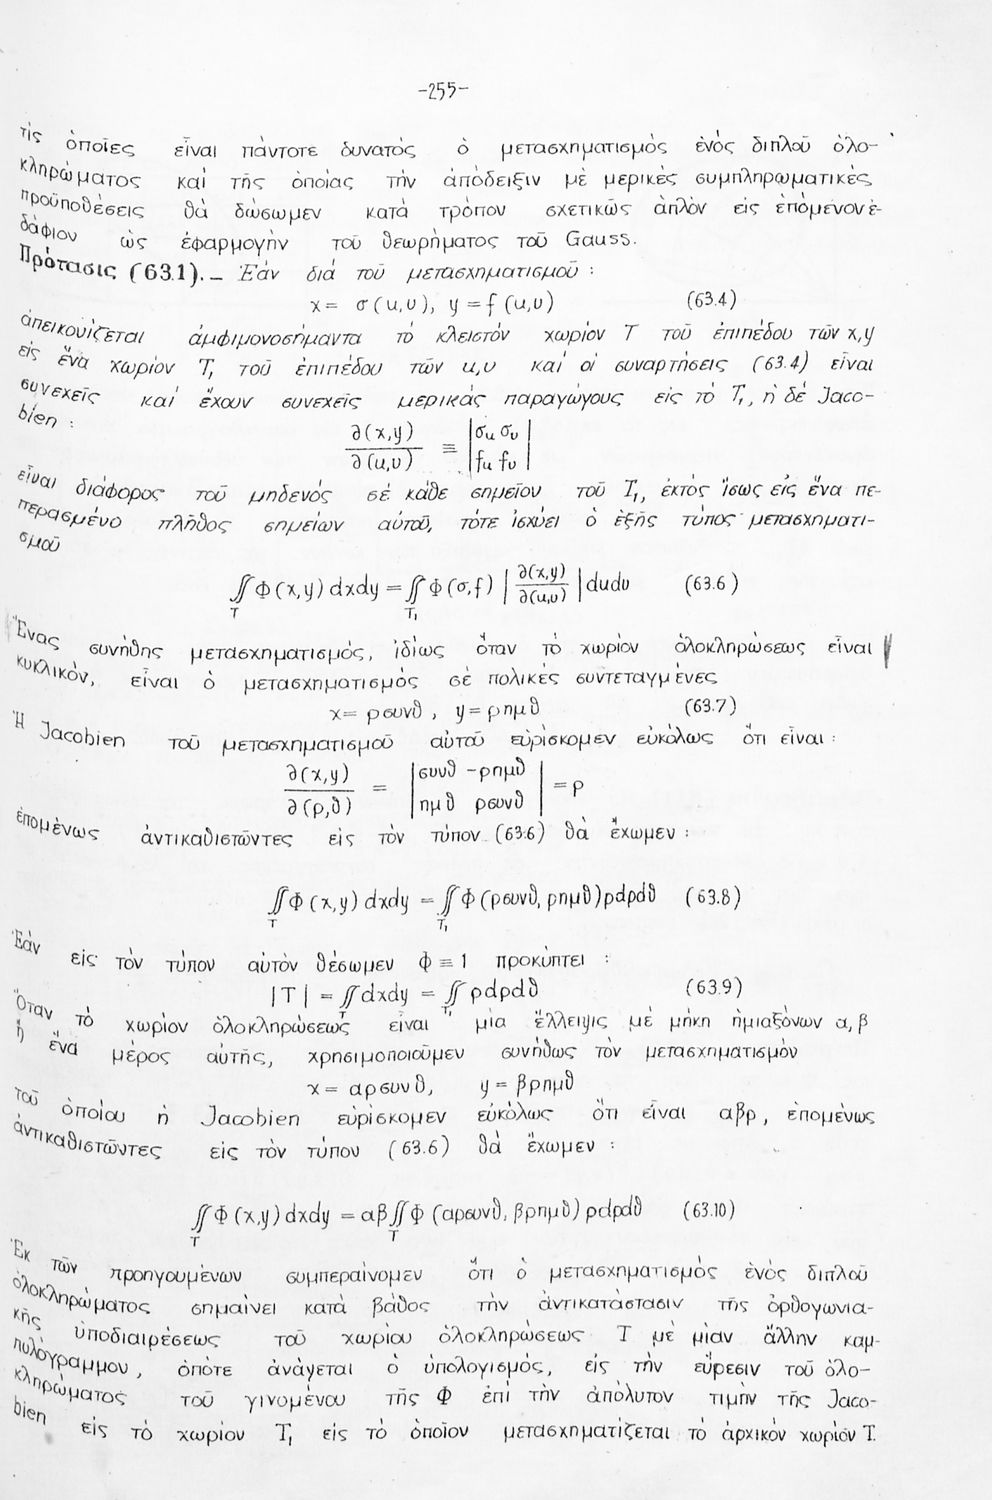 -255-
τὶς ὁποῖες εἶναι πάντοτε δυνατὸς ὁ μετασχηματισμὸς ἑνὸς διπλοῦ ὁλο-
κληρώματος καὶ τῆς ὁποίας τὴν ἀπόδειξιν μὲ μερικὲς συμπληρωματικὲς
προϋποθέσεις θὰ δώσωμεν κατὰ τρόπον σχετικῶς ἁπλὸν εἰς ἑπόμενον ἐ-
δάφιον ὡς ἐφαρμογὴν τοῦ θεωρήματος τοῦ Gauss.
Πρότασις (63.1).- Ἐάν διὰ τοῦ μετασχηματισμοῦ :
x = σ(u,υ), y = f(u,υ) (63.4)
ἀπεικονίζεται ἀμφιμονοσήμαντα τὸ κλειστὸν χωρίον T τοῦ ἐπιπέδου τῶν x,y
εἰς ἕνα χωρίον T₁ τοῦ ἐπιπέδου τῶν u,υ καὶ οἱ συναρτήσεις (63.4) εἶναι
συνεχεῖς καὶ ἔχουν συνεχεῖς μερικὰς παραγώγους εἰς τὸ T₁, ἡ δὲ Jaco-
bien :
∂(x,y)/∂(u,υ) ≡ |σu συ / fu fυ|
εἶναι διάφορος τοῦ μηδενὸς σὲ κάθε σημεῖον τοῦ T₁, ἐκτὸς ἴσως εἰς ἕνα πε-
περασμένο πλῆθος σημείων αὐτοῦ, τότε ἰσχύει ὁ ἑξῆς τύπος μετασχηματι-
σμοῦ
∬_T Φ(x,y) dxdy = ∬_T₁ Φ(σ,f) |∂(x,y)/∂(u,υ)| dudυ (63.6)
Ἕνας συνήθης μετασχηματισμός, ἰδίως ὅταν τὸ χωρίον ὁλοκληρώσεως εἶναι
κυκλικόν, εἶναι ὁ μετασχηματισμὸς σὲ πολικὲς συντεταγμένες
x = ρσυνθ, y = ρημθ (63.7)
Ἡ Jacobien τοῦ μετασχηματισμοῦ αὐτοῦ εὑρίσκομεν εὐκόλως ὅτι εἶναι :
∂(x,y)/∂(ρ,θ) = |συνθ -ρημθ / ημθ ρσυνθ| = ρ
ἑπομένως ἀντικαθιστῶντες εἰς τὸν τύπον (63.6) θὰ ἔχωμεν :
∬_T Φ(x,y) dxdy = ∬_T₁ Φ(ρσυνθ, ρημθ) ρdρdθ (63.8)
Ἐάν εἰς τὸν τύπον αὐτὸν θέσωμεν Φ ≡ 1 προκύπτει :
|T| = ∬_T dxdy = ∬_T₁ ρdρdθ (63.9)
Ὅταν τὸ χωρίον ὁλοκληρώσεως εἶναι μία ἔλλειψις μὲ μήκη ἡμιαξόνων α,β
ἢ ἕνα μέρος αὐτῆς, χρησιμοποιοῦμεν συνήθως τὸν μετασχηματισμὸν
x = αρσυνθ, y = βρημθ
τοῦ ὁποίου ἡ Jacobien εὑρίσκομεν εὐκόλως ὅτι εἶναι αβρ, ἑπομένως
ἀντικαθιστῶντες εἰς τὸν τύπον (63.6) θὰ ἔχωμεν :
∬_T Φ(x,y) dxdy = αβ ∬_T Φ(αρσυνθ, βρημθ) ρdρdθ (63.10)
Ἐκ τῶν προηγουμένων συμπεραίνομεν ὅτι ὁ μετασχηματισμὸς ἑνὸς διπλοῦ
ὁλοκληρώματος σημαίνει κατὰ βάθος τὴν ἀντικατάστασιν τῆς ὀρθογωνια-
κῆς ὑποδιαιρέσεως τοῦ χωρίου ὁλοκληρώσεως T μὲ μίαν ἄλλην καμ-
πυλόγραμμον, ὁπότε ἀνάγεται ὁ ὑπολογισμός, εἰς τὴν εὕρεσιν τοῦ ὁλο-
κληρώματος τοῦ γινομένου τῆς Φ ἐπὶ τὴν ἀπόλυτον τιμὴν τῆς Jaco-
bien εἰς τὸ χωρίον T₁ εἰς τὸ ὁποῖον μετασχηματίζεται τὸ ἀρχικὸν χωρίον T.